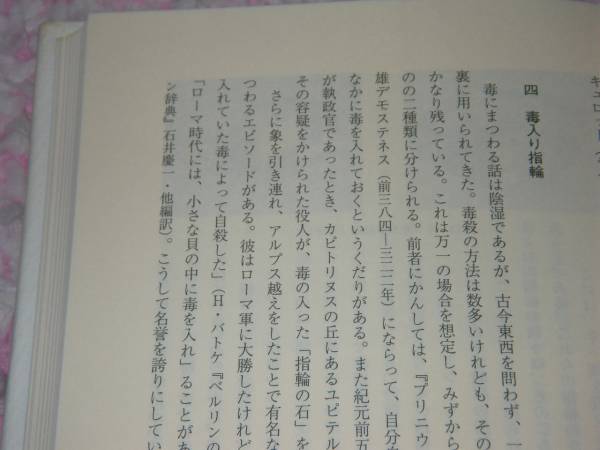 四　毒入り指輪
毒にまつわる話は陰湿であるが、古今東西を問わず、一
裏に用いられてきた。毒殺の方法は数多いけれども、その
かなり残っている。これは万一の場合を想定し、みずから
のの二種類に分けられる。前者にかんしては、『プリニウ
雄デモステネス（前三八四―三二二年）にならって、自分
なかに毒を入れておくというくだりがある。また紀元前五
が執政官であったとき、カピトリヌスの丘にあるユピテル
その容疑をかけられた役人が、毒の入った「指輪の石」を
さらに象を引き連れ、アルプス越えをしたことで有名な
つわるエピソードがある。彼はローマ軍に大勝したけれど
入れていた毒によって自殺した」（H・バトケ『ベルリンの
「ローマ時代には、小さな貝の中に毒を入れ」ることがあ
ン辞典』石井慶一・他編訳）。こうして名誉を誇りにしてい